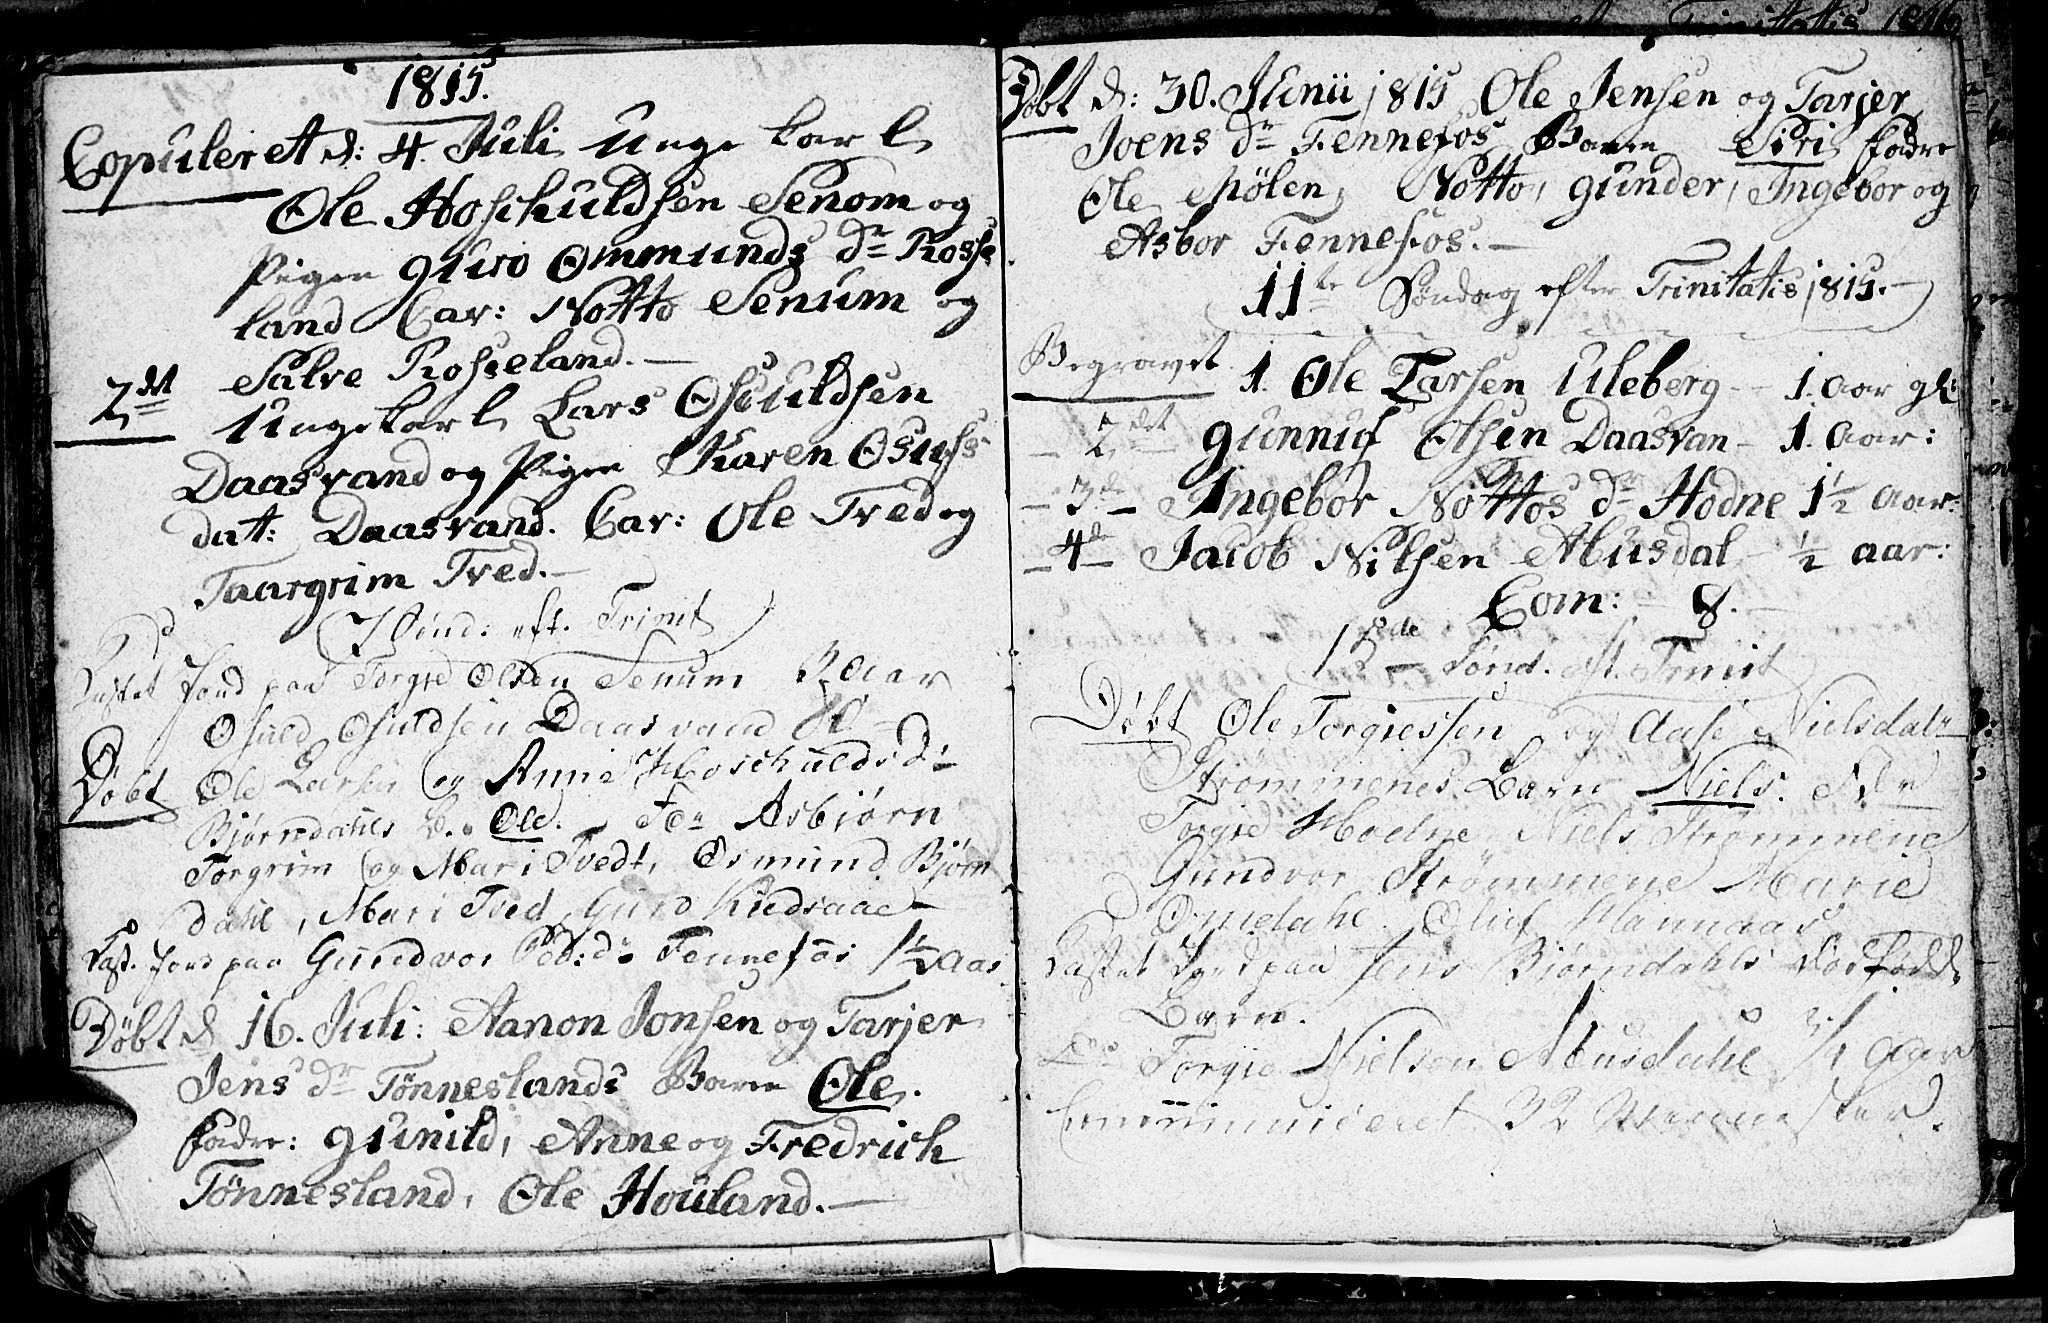 1815.
Copuleret d: 4. Juli Unge karl
Ole Hoschuldsen Senom og
Pigen Guro Ommunds dr Rosse
land Cav: Notto Senum og
Salve Rosseland.—
2det Ungekarl Lars Osuuldsen
Daasvand og Pigen Karen Osufs
dat: Daasvand. Cav: Ole Tved og
Taargrim Tved.—
7 Sönd: eft. Trinit
Kastet Jord paa Torgie Olsen Senum Aar
Osuld Osuldsen Daasvand
Döbt Ole Larsen og Anne Hoschuldsd:
Bjørndahls B. Ole. Fa: Asbjørn
Torgrim og Mari Tvedt, Osmund Bjørn
dahl, Mari Tved, Guro
Kast. Jord paa Gundvor Ped:d: Fennefos 1½ Aar
Döbt d 16. Juli: Aanon Jonsen og Tarjer
Jens dr Tönneslands Barn Ole.
fadre: Gunild, Anne og Fredrich
Tönnesland, Ole Houland.—
Trinitatis 1816
Döbt d: 30. Junii 1815 Ole Jensen og Tarjer
Joens dr Fennefos Barn Siri fadre
Ole Mölen, Notto, Gunder, Ingebor og
Asbor Fennefos.—
11te Söndag efter Trinitatis 1815.—
Begravet 1. Ole Larsen Uleberg — 1. Aar gl:
— 2det Gunnuf Olsen Daasvan — 1. Aar:
— 3de — Ingebor Nottos dr Hodne 1½ Aar:
— 4de — Jacob Nilsen Musdal — ½ aar:
Com: — 8.—
12de — Sönd. eft. Trinit
Döbt Ole Torgiessen og Aase Nielsdatr
Strömmenes Barn Niels.
Torgie Hodne Niels Strömmene
Gundvor Strömmene Marie
Omdahl. Oluf Hannaas
Kastet Jord paa Jens Bjørndahls Dødfødde
Barn.
Do Torgie Nielsen Musdahl ¾ Aar
Communiceret 32 Mennesker.